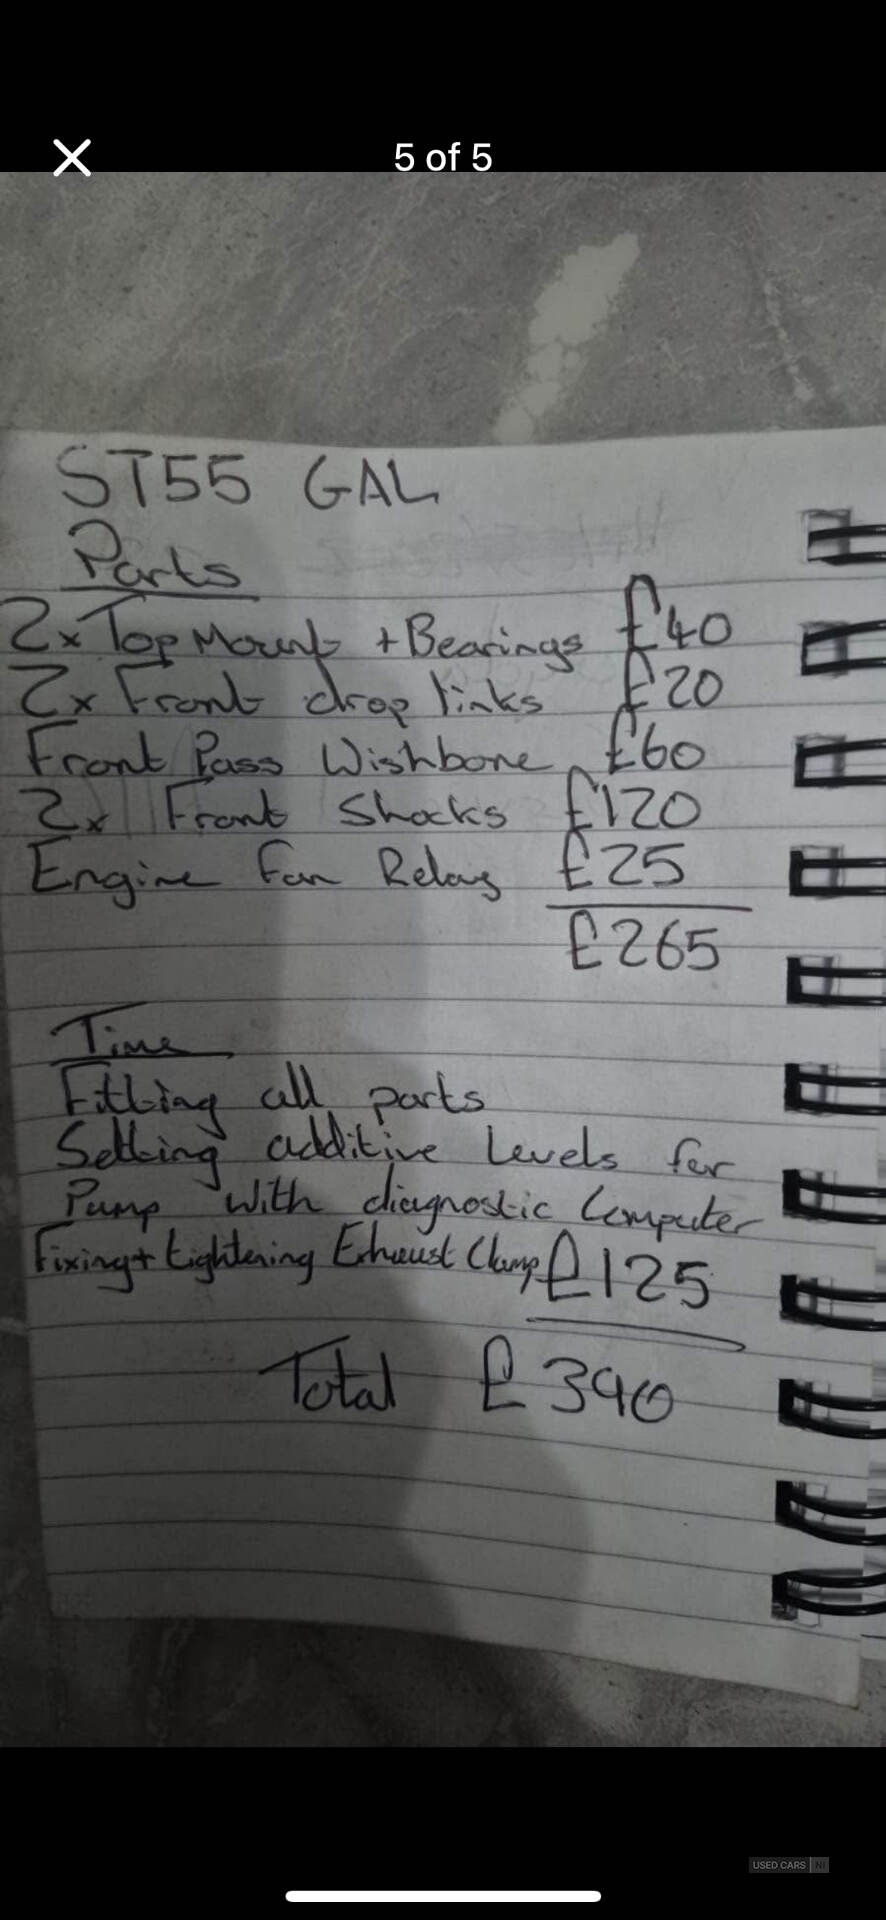 5 of 5
ST55 GAL
Parts
2x Top Mount + Bearings £40
2x Front drop links £20
Front Pass Wishbone £60
2x Front Shocks £120
Engine Fan Relay £25
£265
Time
Fitting all parts
Setting additive levels for
Pump with diagnostic Computer
Fixing + tightening Exhaust Clamp £125
Total £390
USED CARS NI